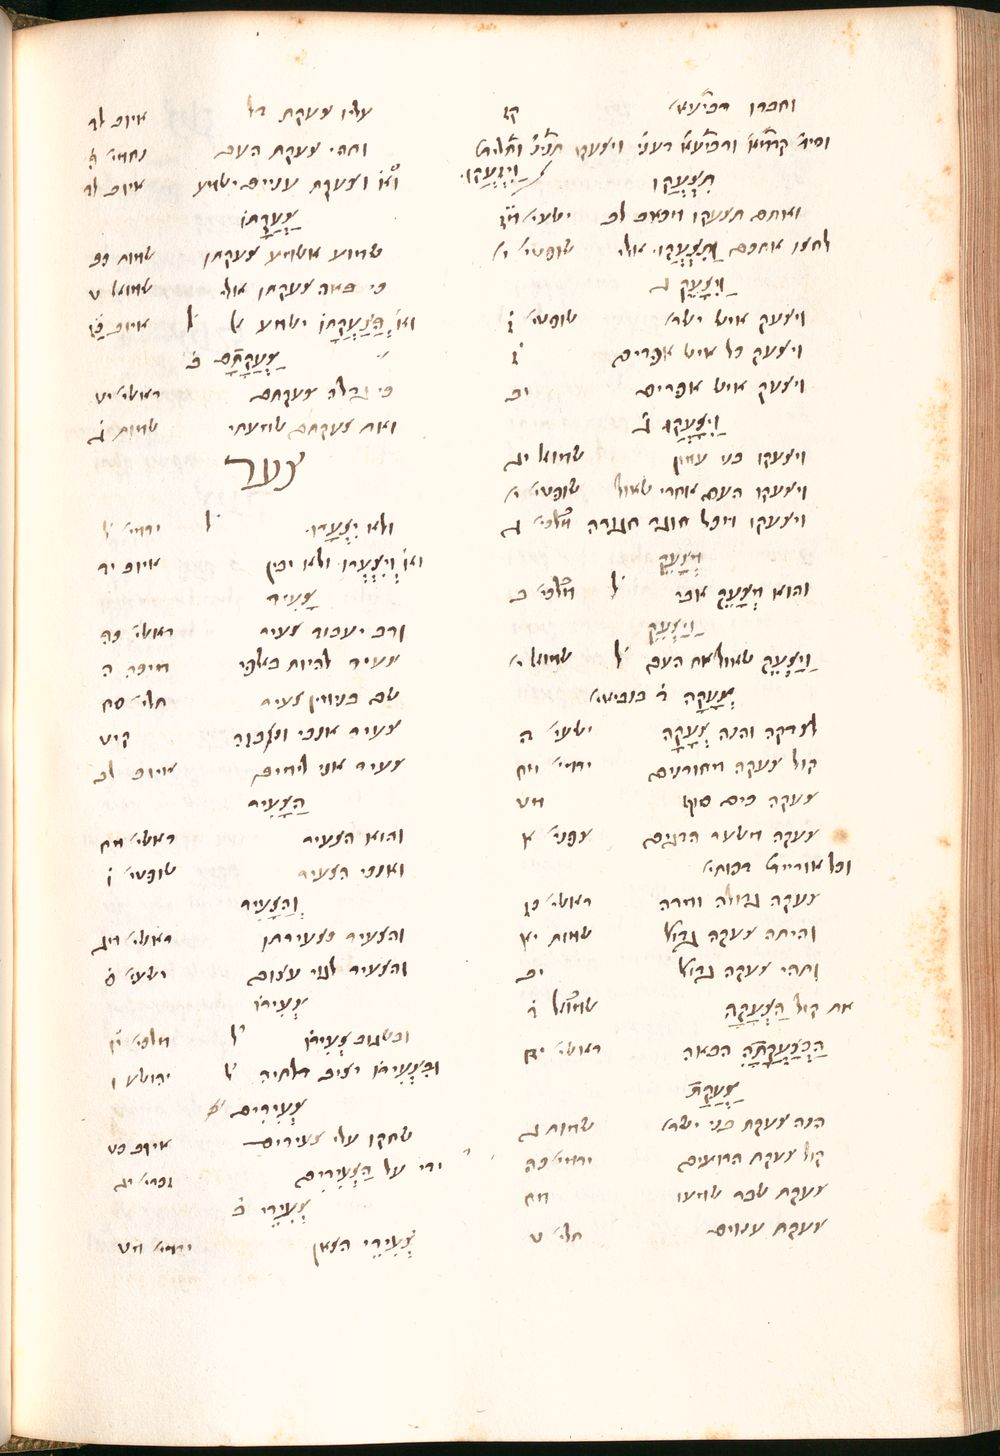 וחברו רביעא קז
וסיר קדמ' ורביעא רעני ויצעקו תניינ' ותלית
תִצְעֲקו וַיִזְעֲקו
ואתם תצעקו מכאב לב ישעי' סה
לחצו אתכם וַתִצְעֲקו אלי שופטי' י
וַיִצָעֵק ג
ויצעק איש ישרא' שופטי' ז
ויצעק כל איש אפרים ז
ויצעק איש אפרים יב
וַיִצָעֲקו ג
ויצעקו בני עמון שופטי' י
ויצעקו העם אחרי שאול שמואל יג
ויצעקו מכל חוגר חגורה מלכי' ג
מְצַעֵק
והוא מְצַעֵק אבי ל מלכי' ב
וַיַצְעֵק
וַיַצְעֵק שמואל את העם ל שמואל י
צְעָקָה ז בנביאי'
לצדקה והנה צְעָקָה ישעי' ה
קול צעקה מחורנים ירמי' מח
צעקה בים סוף מט
צעקה משער הדגים צפני' א
וכל אורייתא דכותי'
צעקה גדולה ומרה ראשי' כז
והיתה צעקה גדול' שמות יא
ותהי צעקה גדול' יב
את קול הַצְעָקָה שמואל ד
הַכְצַעֲקָתָהּ הבאה ראשי' יח
צַעֲקַת
הנה צעקת בני ישרא' שמות ג
קול צעקת הרועים ירמי' כה
צעקת שבר שמעו מח
צעקת ענוים תלי' ט
עליו צעקת דל איוב לד
ותהי צעקת העם נחמי' ה
וא'ו וצעקת עניים ישמע איוב לד
צַעֲקָתוֹ
שמוע אשמע צעקתו שמות כב
כי באה צעקתו אלי שמואל ט
וא'ו הַצַעֲקָתוֹ ישמע אל ל איוב כז
צַעֲקָתָם ב
כי גדלה צעקתם ראשי' יט
ואת צעקתם שמעתי שמות ג
צער
ולא יִצְעָרו ל ירמי' ל
וא'ו וְיִצְעֲרו ולא יבין איוב יד
צָעִיר
ורב יעבוד צעיר ראשי' כה
צעיר להיות באלפי מיכה ה
שם בנימין צעיר תלי' סח
צעיר אנכי ונבזה קיט
צעיר אני לימים איוב לב
הַצָעִיר
והוא הצעיר ראשי' מח
ואנכי הצעיר שופטי' ו
וְהַצָעִיר
והצעיר כצעירתו ראשי' מג
והצעיר לגוי עצום ישעי' ס
צְעִירוֹ
ובשגוב צְעִירוֹ ל מלכי' יו
וּבִצְעִירוֹ יציב דלתיה ל יהושע ו
צְעִירִים
שחקו עלי צעירים איוב כט
ידי על הַצְעִירִים זכרי' יג
צְעִירֵי ב
צְעִירֵי הצאן ירמי' מט